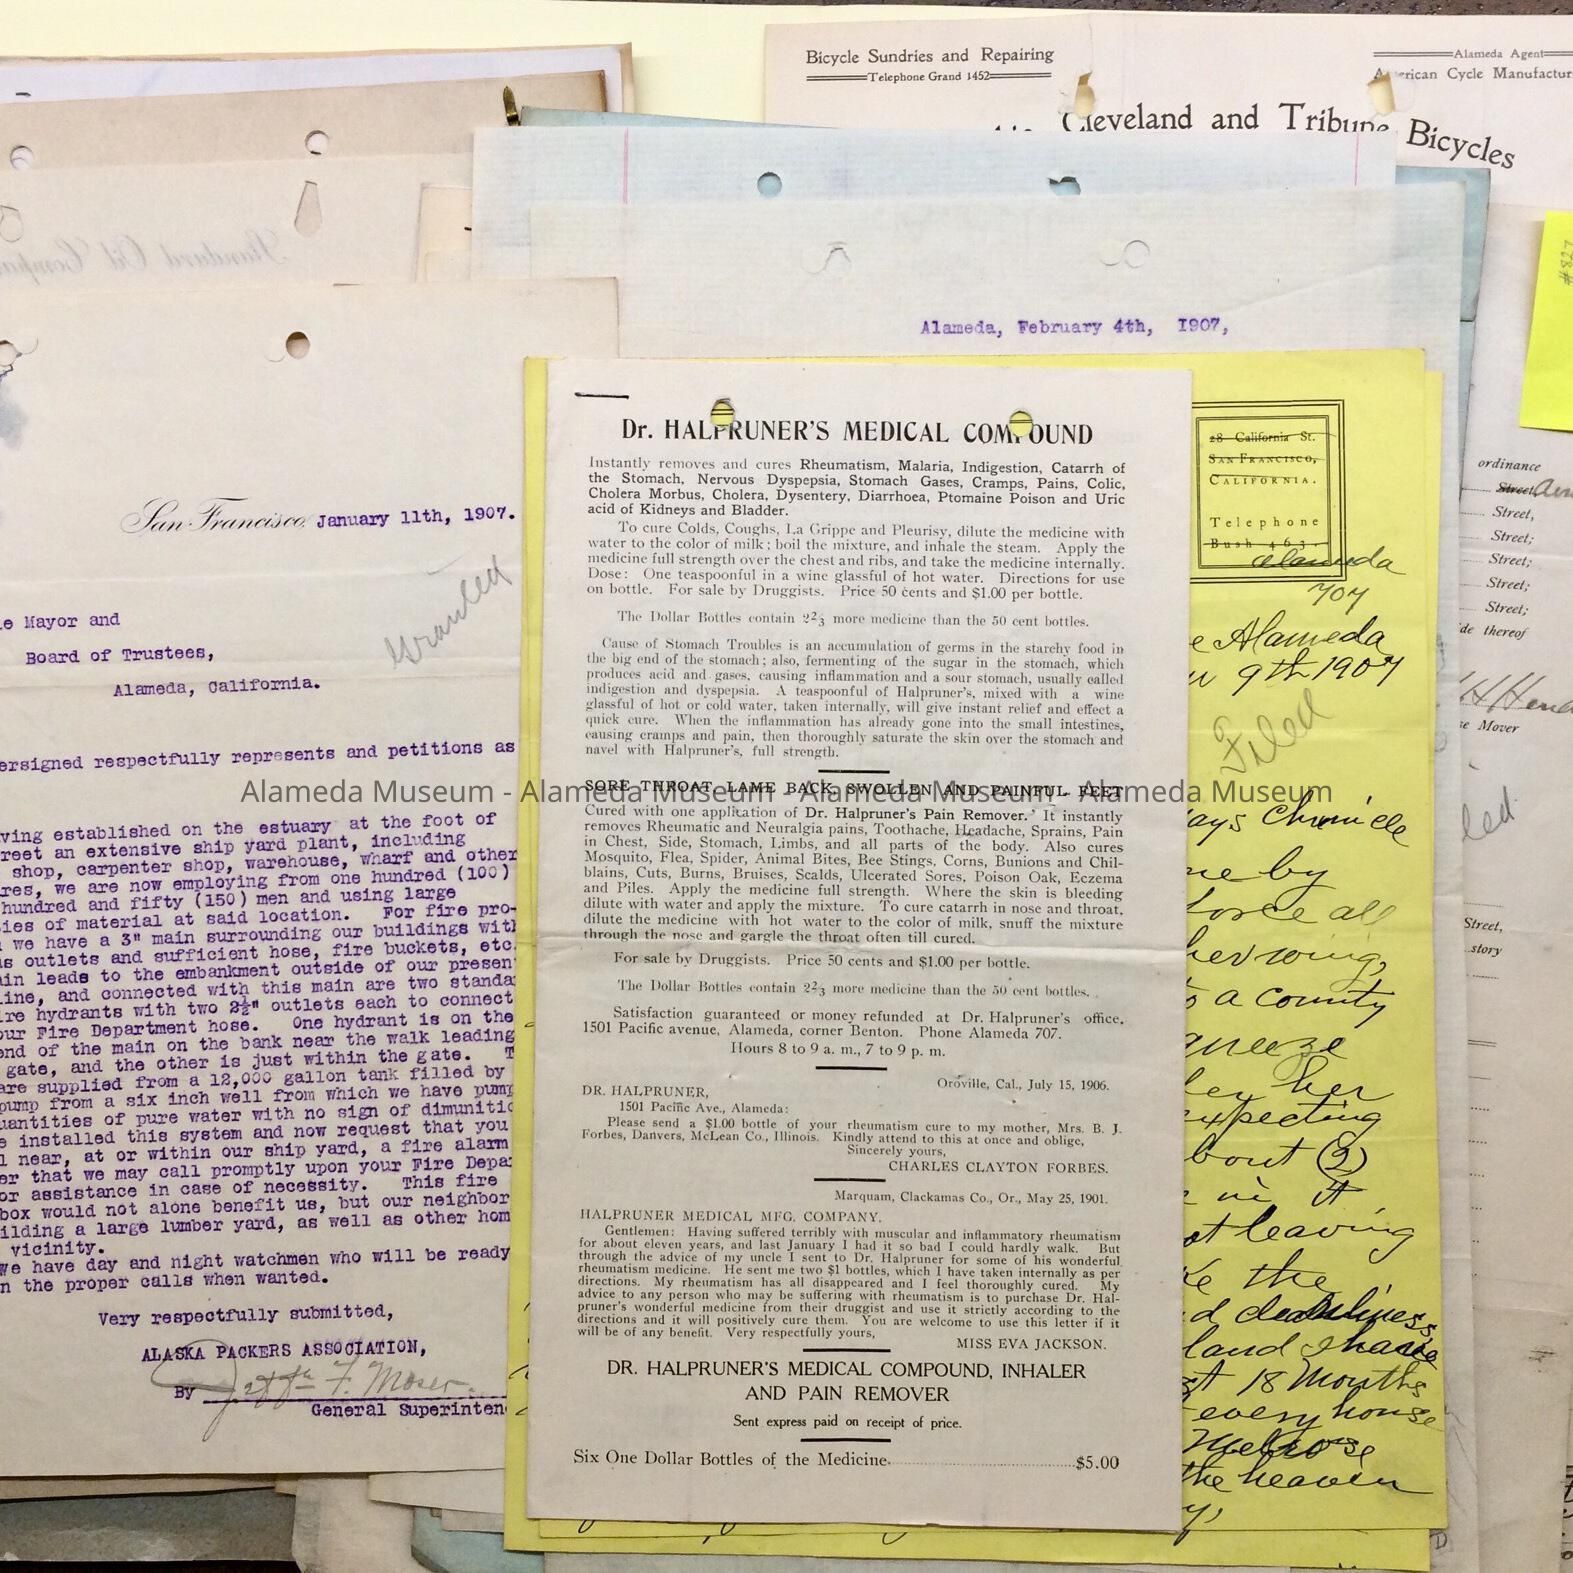 Bicycle Sundries and Repairing
Telephone Grand 1452
Alameda Agent
American Cycle Manufactur
Cleveland and Tribune Bicycles
Standard Oil Compan
Alameda, February 4th, 1907,
San Francisco, January 11th, 1907.
Granted
e Mayor and
Board of Trustees,
Alameda, California.
ersigned respectfully represents and petitions as
ving established on the estuary at the foot of
reet an extensive ship yard plant, including
shop, carpenter shop, warehouse, wharf and other
res, we are now employing from one hundred (100)
hundred and fifty (150) men and using large
ies of material at said location. For fire pro-
we have a 3" main surrounding our buildings with
us outlets and sufficient hose, fire buckets, etc.
ain leads to the embankment outside of our presen
line, and connected with this main are two standa
ire hydrants with two 2½" outlets each to connect
our Fire Department hose. One hydrant is on the
end of the main on the bank near the walk leading
gate, and the other is just within the gate. T
are supplied from a 12,000 gallon tank filled by
pump from a six inch well from which we have pump
uantities of pure water with no sign of dimunitio
e installed this system and now request that you
l near, at or within our ship yard, a fire alarm
er that we may call promptly upon your Fire Depa
or assistance in case of necessity. This fire
box would not alone benefit us, but our neighbor
ilding a large lumber yard, as well as other hom
vicinity.
we have day and night watchmen who will be ready
n the proper calls when wanted.
Very respectfully submitted,
ALASKA PACKERS ASSOCIATION,
By Jeff F. Moser
General Superinten
Dr. HALPRUNER'S MEDICAL COMPOUND
Instantly removes and cures Rheumatism, Malaria, Indigestion, Catarrh of
the Stomach, Nervous Dyspepsia, Stomach Gases, Cramps, Pains, Colic,
Cholera Morbus, Cholera, Dysentery, Diarrhoea, Ptomaine Poison and Uric
acid of Kidneys and Bladder.
To cure Colds, Coughs, La Grippe and Pleurisy, dilute the medicine with
water to the color of milk; boil the mixture, and inhale the steam. Apply the
medicine full strength over the chest and ribs, and take the medicine internally.
Dose: One teaspoonful in a wine glassful of hot water. Directions for use
on bottle. For sale by Druggists. Price 50 cents and $1.00 per bottle.
The Dollar Bottles contain 2⅔ more medicine than the 50 cent bottles.
Cause of Stomach Troubles is an accumulation of germs in the starchy food in
the big end of the stomach; also, fermenting of the sugar in the stomach, which
produces acid and gases, causing inflammation and a sour stomach, usually called
indigestion and dyspepsia. A teaspoonful of Halpruner's, mixed with a wine
glassful of hot or cold water, taken internally, will give instant relief and effect a
quick cure. When the inflammation has already gone into the small intestines,
causing cramps and pain, then thoroughly saturate the skin over the stomach and
navel with Halpruner's, full strength.
SORE THROAT, LAME BACK, SWOLLEN AND PAINFUL FEET
Cured with one application of Dr. Halpruner's Pain Remover. It instantly
removes Rheumatic and Neuralgia pains, Toothache, Headache, Sprains, Pain
in Chest, Side, Stomach, Limbs, and all parts of the body. Also cures
Mosquito, Flea, Spider, Animal Bites, Bee Stings, Corns, Bunions and Chil-
blains, Cuts, Burns, Bruises, Scalds, Ulcerated Sores, Poison Oak, Eczema
and Piles. Apply the medicine full strength. Where the skin is bleeding
dilute with water and apply the mixture. To cure catarrh in nose and throat,
dilute the medicine with hot water to the color of milk, snuff the mixture
through the nose and gargle the throat often till cured.
For sale by Druggists. Price 50 cents and $1.00 per bottle.
The Dollar Bottles contain 2⅔ more medicine than the 50 cent bottles.
Satisfaction guaranteed or money refunded at Dr. Halpruner's office,
1501 Pacific avenue, Alameda, corner Benton. Phone Alameda 707.
Hours 8 to 9 a. m., 7 to 9 p. m.
Oroville, Cal., July 15, 1906.
DR. HALPRUNER,
1501 Pacific Ave., Alameda:
Please send a $1.00 bottle of your rheumatism cure to my mother, Mrs. B. J.
Forbes, Danvers, McLean Co., Illinois. Kindly attend to this at once and oblige,
Sincerely yours,
CHARLES CLAYTON FORBES.
Marquam, Clackamas Co., Or., May 25, 1901.
HALPRUNER MEDICAL MFG. COMPANY.
Gentlemen: Having suffered terribly with muscular and inflammatory rheumatism
for about eleven years, and last January I had it so bad I could hardly walk. But
through the advice of my uncle I sent to Dr. Halpruner for some of his wonderful
rheumatism medicine. He sent me two $1 bottles, which I have taken internally as per
directions. My rheumatism has all disappeared and I feel thoroughly cured. My
advice to any person who may be suffering with rheumatism is to purchase Dr. Hal-
pruner's wonderful medicine from their druggist and use it strictly according to the
directions and it will positively cure them. You are welcome to use this letter if it
will be of any benefit. Very respectfully yours,
MISS EVA JACKSON.
DR. HALPRUNER'S MEDICAL COMPOUND, INHALER
AND PAIN REMOVER
Sent express paid on receipt of price.
Six One Dollar Bottles of the Medicine $5.00
28 California St.
SAN FRANCISCO,
CALIFORNIA.
Telephone
Bush 463.
Alameda
707
e Alameda
9th 1907
Filed
ays Chronicle
me by
force all
her wing,
to a county
queeze
ley her
expecting
bout (2)
in it
ot leaving
ke the
d
land I have
st 18 Months
every house
Melrose
the heaven
y,
ordinance
Street,
Street,
Street;
Street;
Street;
Street;
de thereof
e Mover
led
Street,
story
Alameda Museum - Alameda Museum - Alameda Museum - Alameda Museum